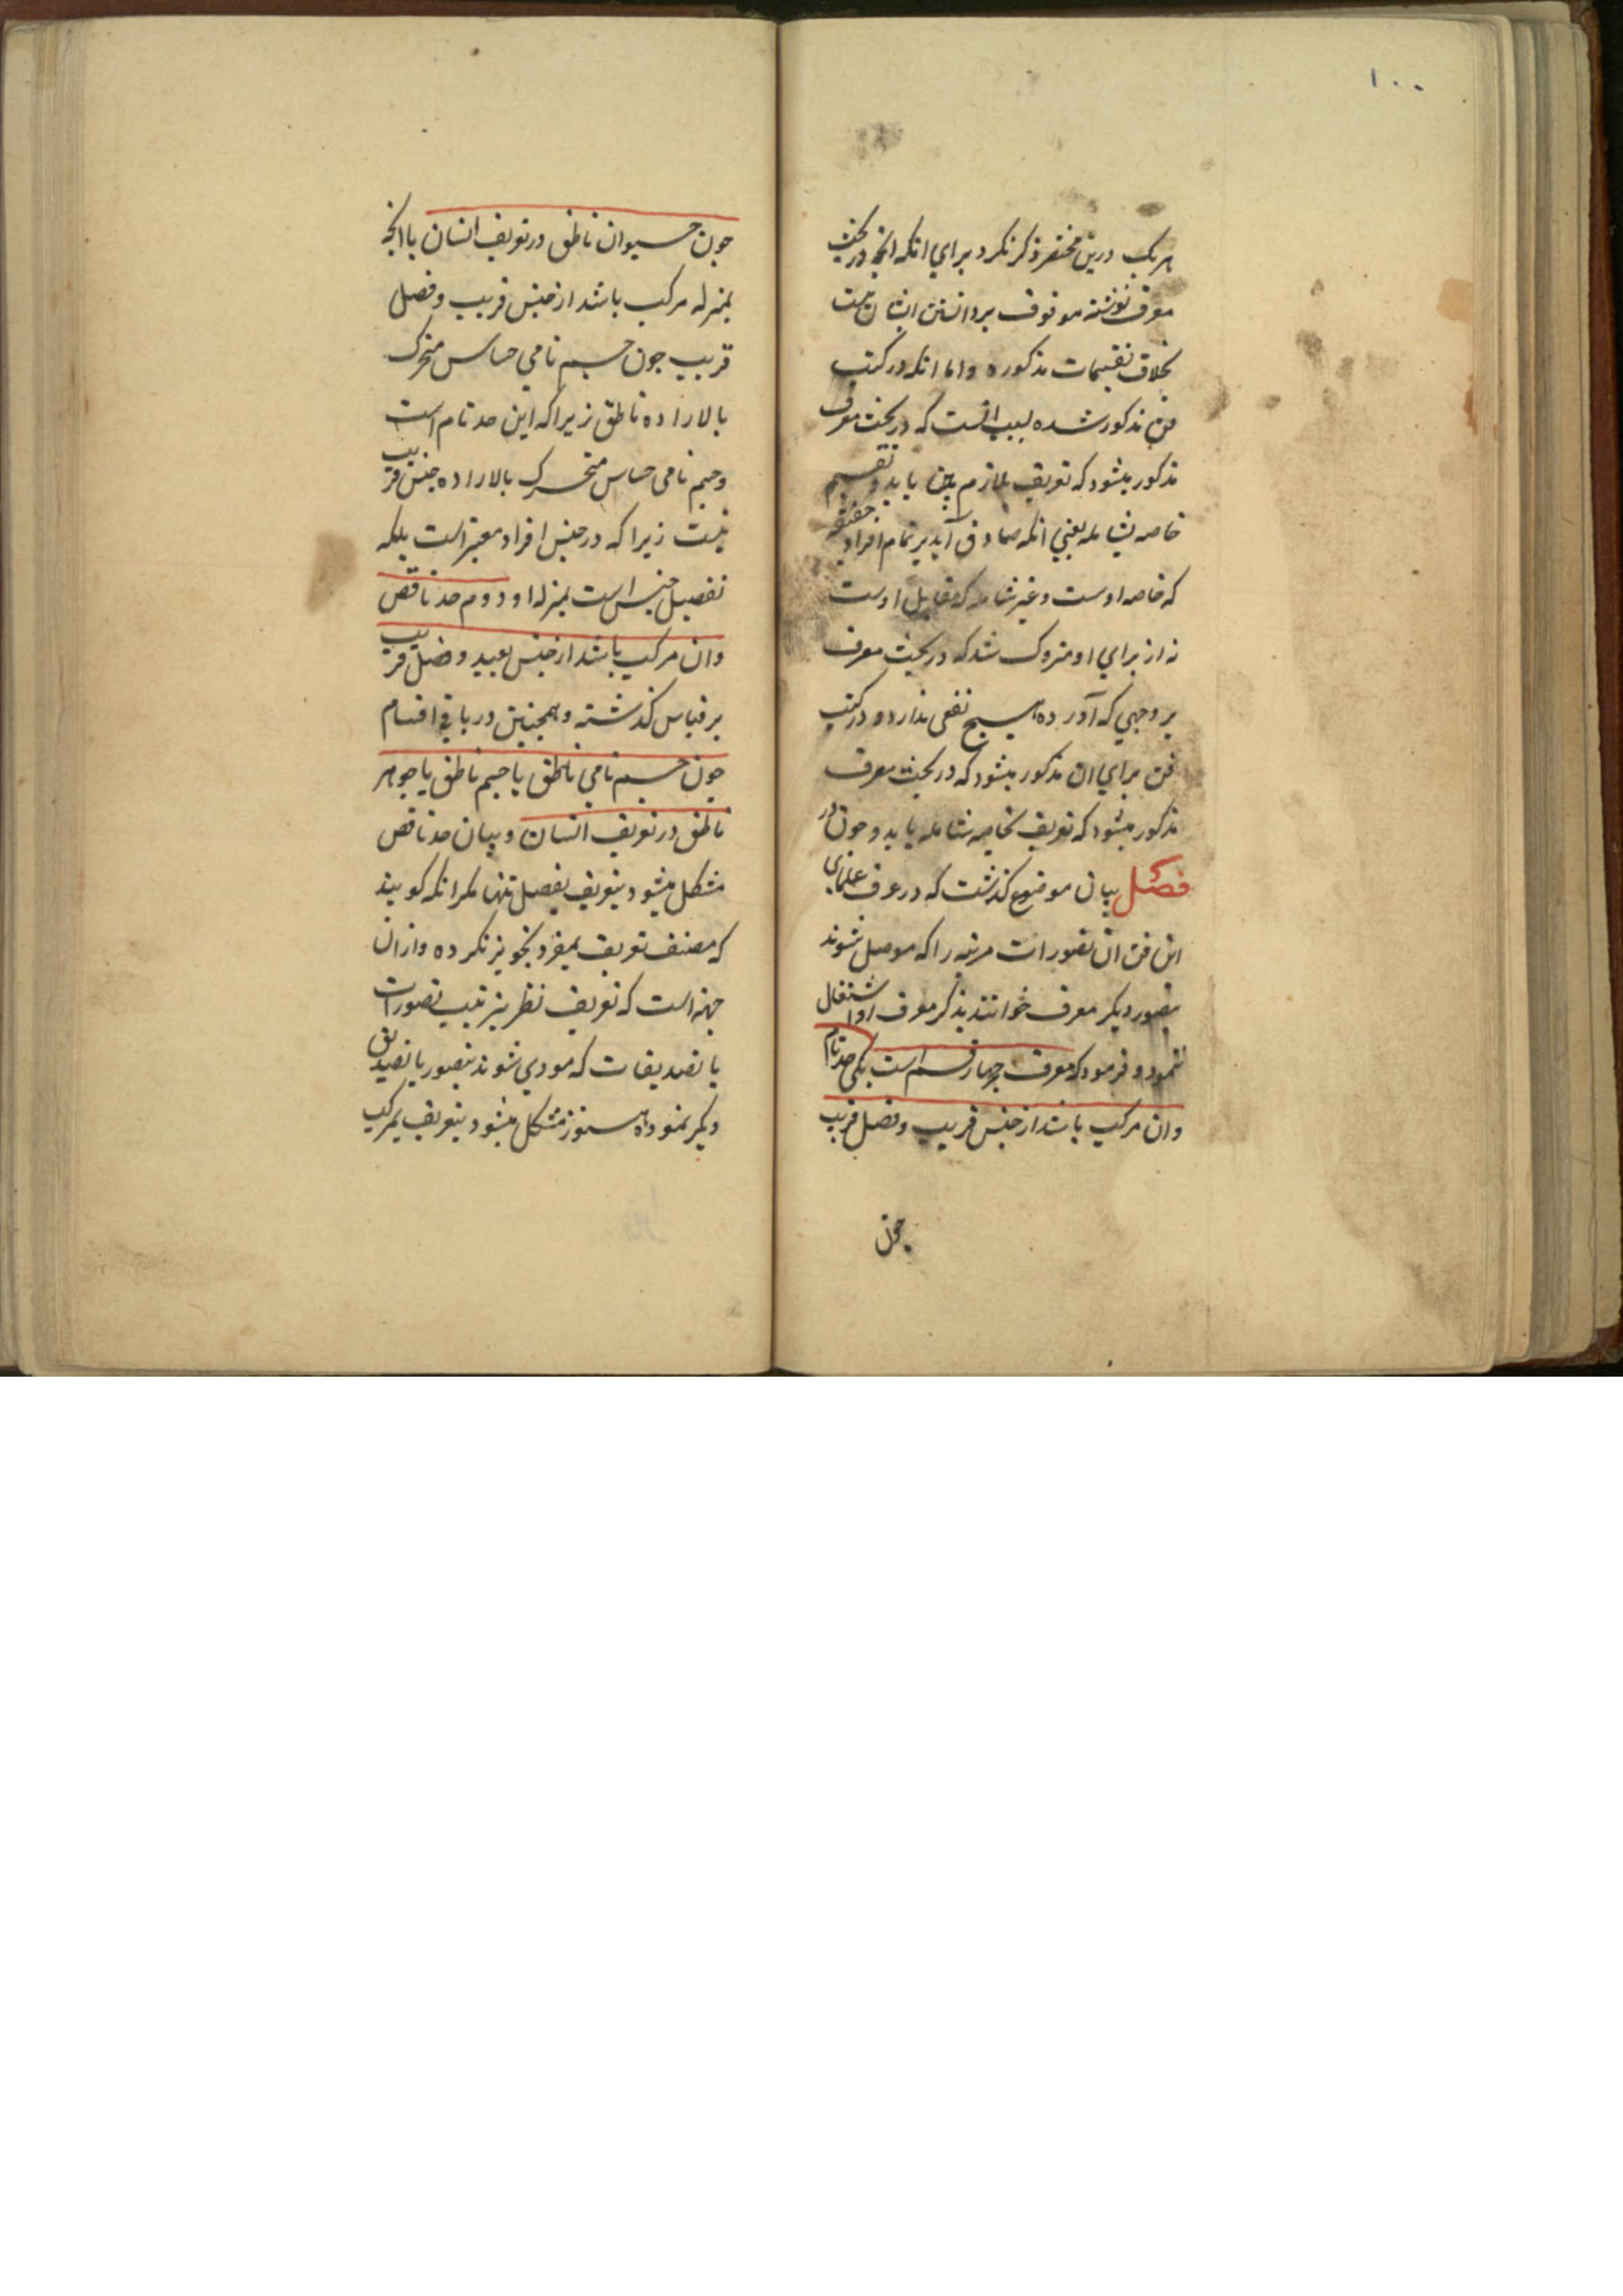 ۱۰۰
هر یک درین مختصر ذکر نکرد برای انکه انچه در بحث
معرف نوشته موقوف بر دانستن ایشان نیست
بخلاف تقسیمات مذکوره و اما انکه در کتب
فن مذکور شده بسبب انست که در بحث معرف
مذکور میشود که تعریف بلازم بین باید و تقسیم
خاصه بشامله یعنی انکه صادق آید بر تمام افراد حقیقة
که خاصه اوست و غیر شامله که مقابل اوست
نه از برای او متروک شد که در بحث معرف
بر وجهی که آورده هیچ نفعی ندارد و در کتب
فن برای ان مذکور میشود که در بحث معرف
مذکور میشود که تعریف بخاصه شامله باید و چون در
فصل بیان موضوع کذشت که در عرف علمای
این فن ان تصورات مرتبه را که موصل شوند
بتصور دیکر معرف خوانند بذکر معرف اولا اشتغال
نمود و فرمود که معرف چهار قسم است یکی حد تام
وان مرکب باشد از جنس قریب و فصل قریب
چون
جون حیوان ناطق در تعریف انسان یا انچه
بمنزله مرکب باشد از جنس قریب و فصل
قریب جون جسم نامی حساس متحرک
بالاراده ناطق زیرا که این حد تام است
و جسم نامی حساس متحرک بالاراده جنس قریب
نیست زیرا که در جنس افراد معتبر است بلکه
تفصیل جنس است بمنزله او دوم حد ناقص
وان مرکب باشد از جنس بعید و فصل قریب
بر قیاس کذشته و همچنین در باقی اقسام
جون جسم نامی ناطق یا جسم ناطق یا جوهر
ناطق در تعریف انسان و بیان حد ناقص
مشکل میشود بتعریف بفصل تنها مکر انکه کویند
که مصنف تعریف بمفرد تجویز نکرده و از ان
جهة است که تعریف نظر بترتیب تصورات
یا تصدیقات که مودی شوند بتصور یا تصدیق
دیکر نموده هنوز مشکل میشود بتعریف بمرکب